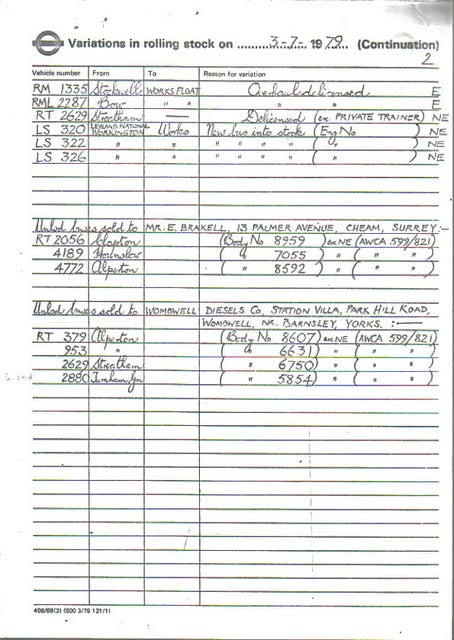 Variations in rolling stock on ..........3-7-.. 1979... (Continuation)
2
Vehicle number From To Reason for variation
RM 1335 Stockwell WORKS FLOAT Overhaul delicensed E
RML 2287 Bow " " " " E
RT 2629 Streatham — Delicensed (ex PRIVATE TRAINER) NE
LS 320 LEYLAND NATIONAL WORKINGTON Works New bus into stock (Eng No ) NE
LS 322 " " " " " " ( ) NE
LS 326 " " " " " " ( ) NE
Unlsd buses sold to MR. E. BRAKELL, 13 PALMER AVENUE, CHEAM, SURREY:-
RT 2056 Clapton (Body No 8959) ex NE (AWCA 599/821)
4189 Hounslow ( " 7055) " " ( " " )
4772 Alperton ( " 8592) " " ( " " )
Unlsd buses sold to WOMBWELL DIESELS CO, STATION VILLA, PARK HILL ROAD,
WOMBWELL, NR. BARNSLEY, YORKS. :—
RT 379 Alperton (Body No 8607) ex NE (AWCA 599/821)
953 " ( " 6631) " " ( " " )
2629 Streatham ( " 6750) " " ( " " )
2880 ( " 5854) " " ( " " )
408/89(2) (500 3/79 121/1)